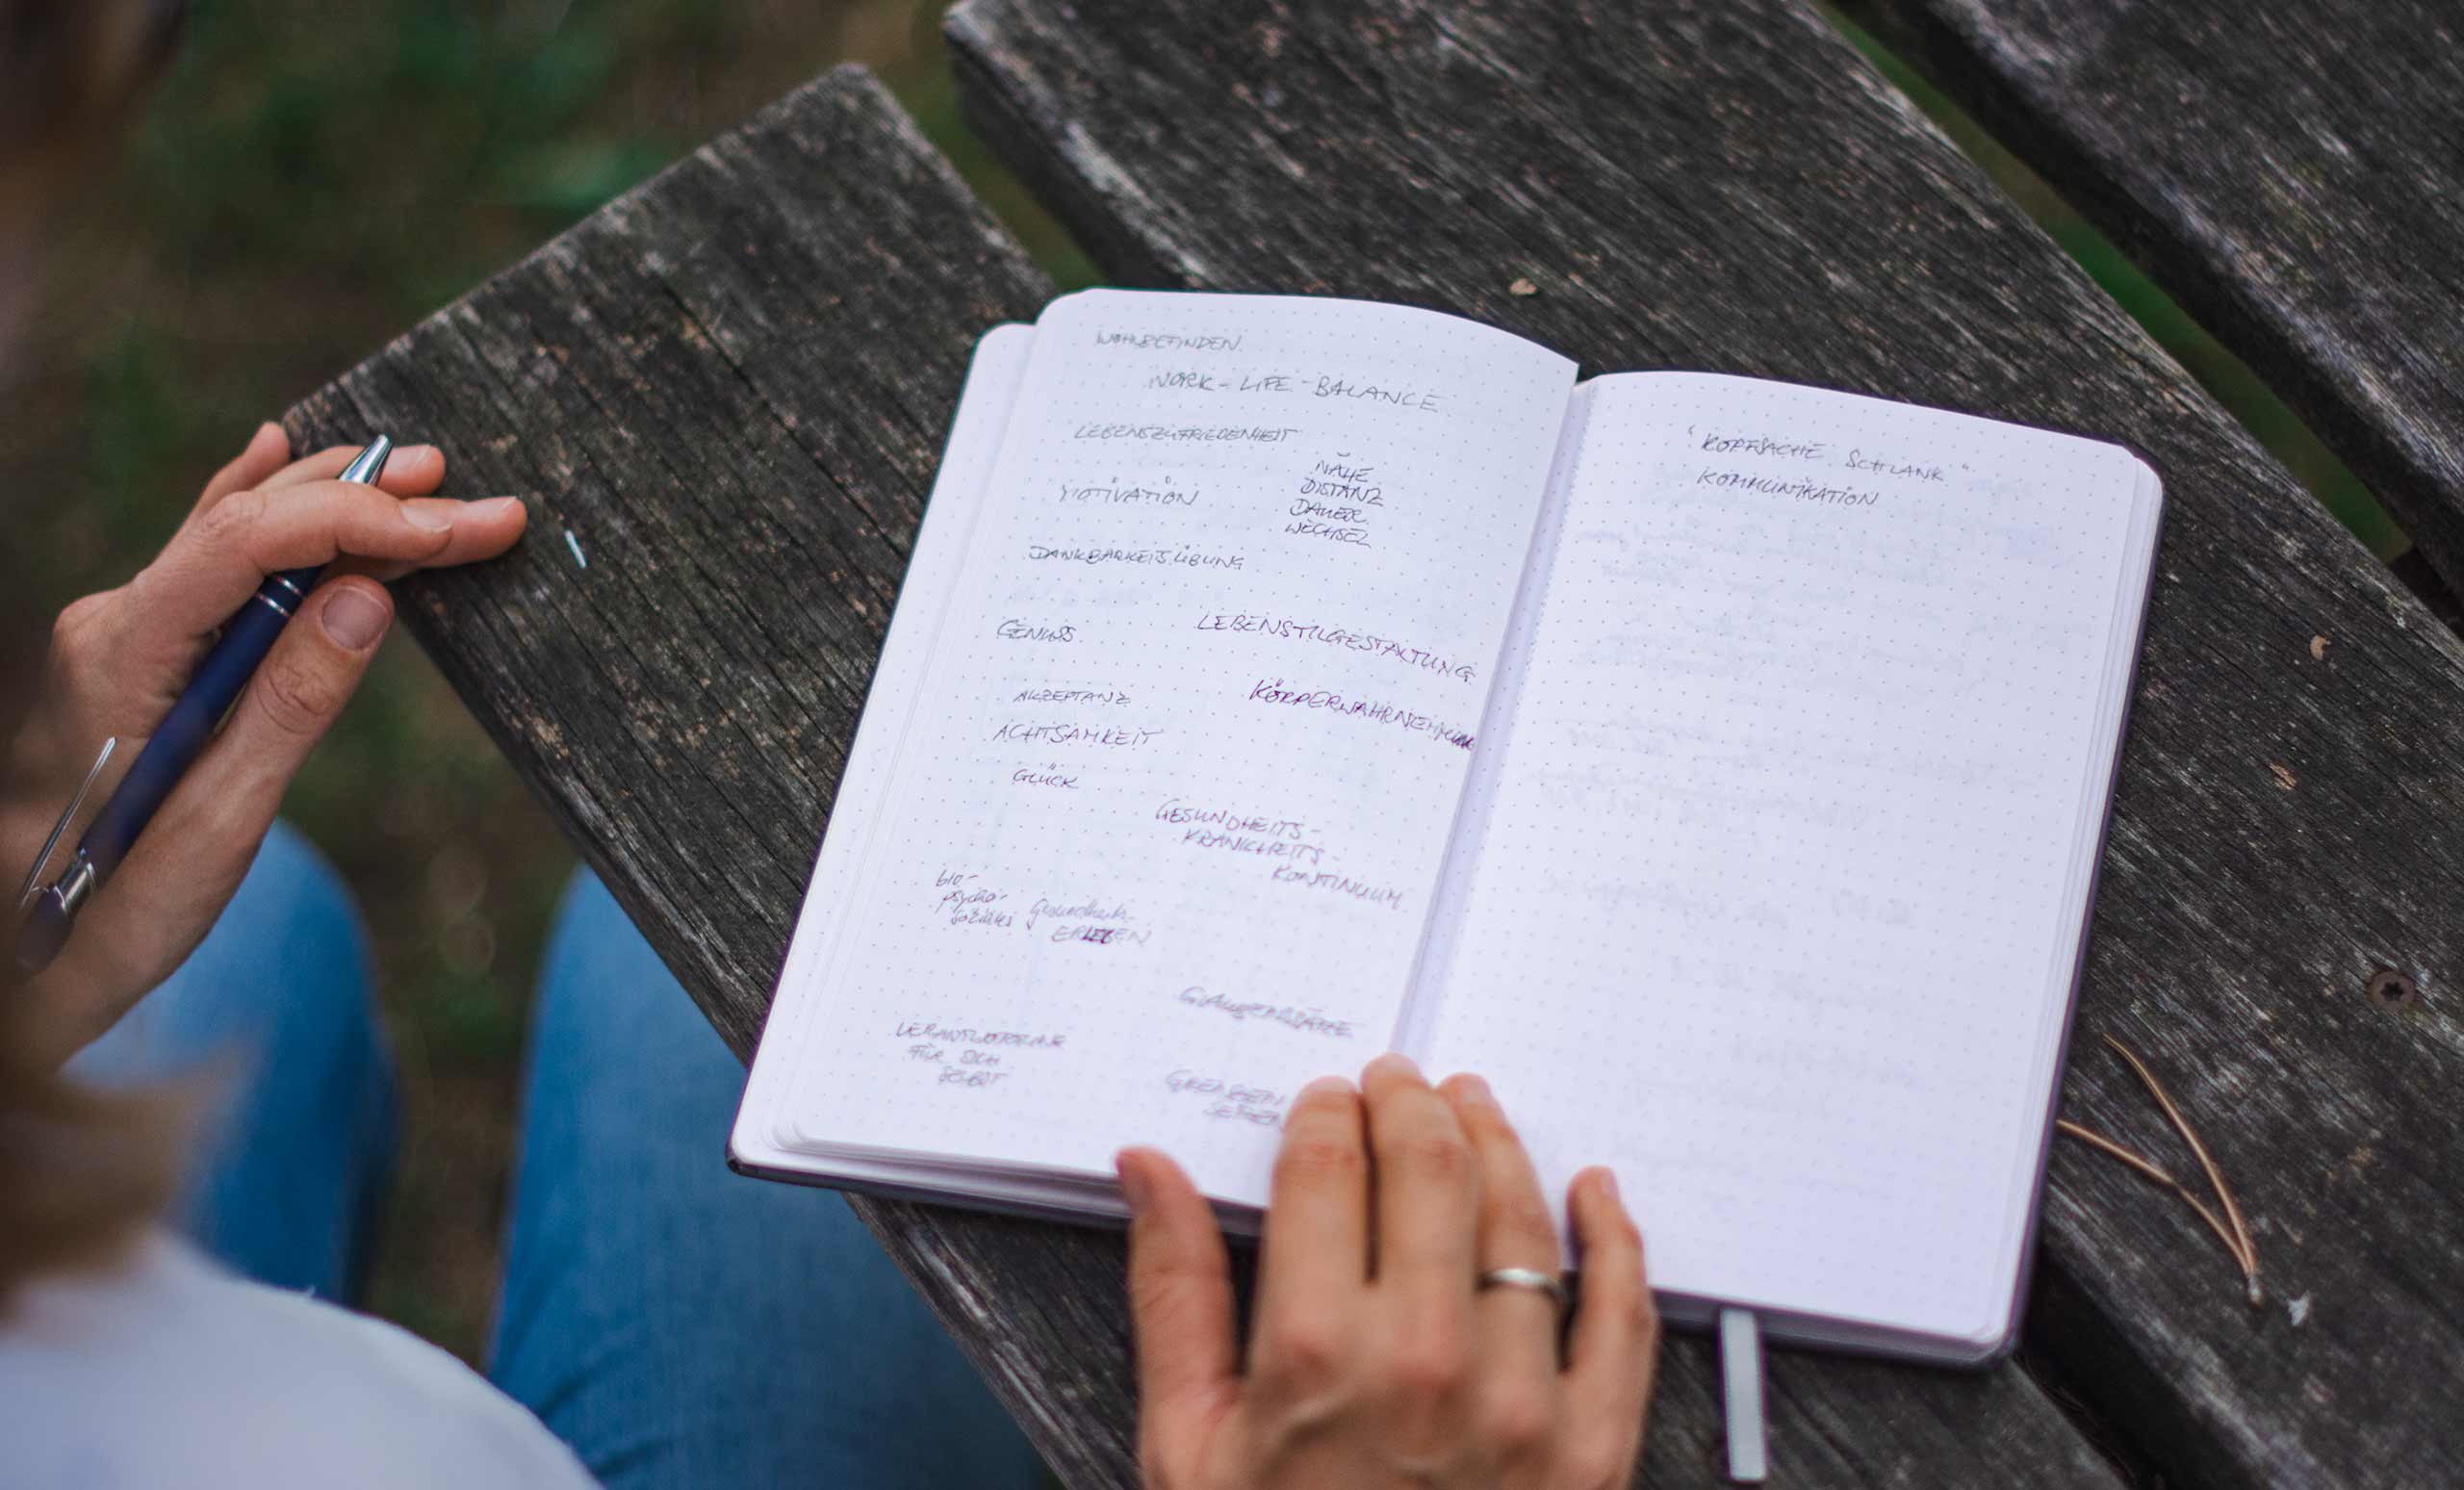 WOHLBEFINDEN.
WORK-LIFE-BALANCE
LEBENSZUFRIEDENHEIT
NÄHE
DISTANZ
DAUER
WECHSEL
MOTIVATION
DANKBARKEITSÜBUNG
GENUSS
LEBENSTILGESTALTUNG
AKZEPTANZ
KÖRPERWAHRNEHMUNG
ACHTSAMKEIT
GLÜCK
GESUNDHEITS-
KRANKHEITS-
KONTINUUM
bio-
psycho-
soziales Gesundheits-
ERLEBEN
GLAUBENSSÄTZE
VERANTWORTUNG
FÜR SICH
SELBST
GRENZEN
SETZEN
"KOPFSACHE SCHLANK"
KOMMUNIKATION